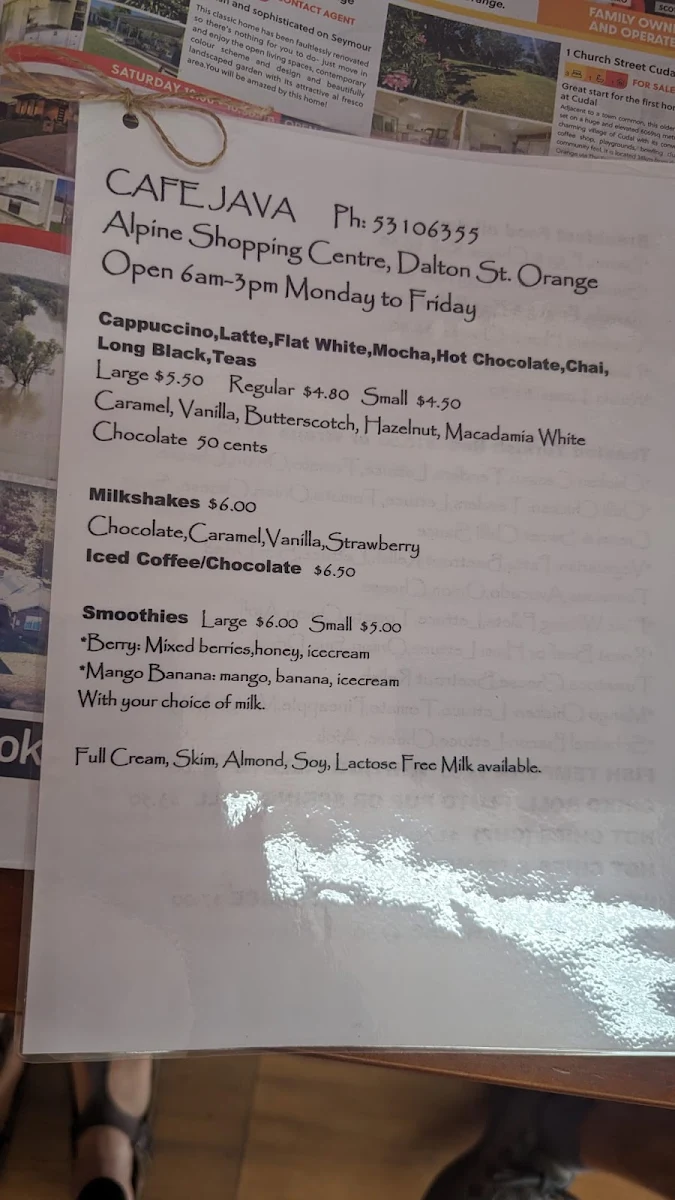 CONTACT AGENT
and sophisticated on Seymour
This classic home has been faultlessly renovated
so there's nothing for you to do- just move in
and enjoy the open living spaces, contemporary
colour scheme and design and beautifully
landscaped garden with its attractive al fresco
area. You will be amazed by this home!
SATURDAY
FAMILY OWN
AND OPERATE
1 Church Street Cuda
FOR SALE
Great start for the first ho
at Cudal
CAFE JAVA Ph: 53106355
Alpine Shopping Centre, Dalton St. Orange
Open 6am-3pm Monday to Friday
Cappuccino,Latte,Flat White,Mocha,Hot Chocolate,Chai,
Long Black,Teas
Large $5.50 Regular $4.80 Small $4.50
Caramel, Vanilla, Butterscotch, Hazelnut, Macadamia White
Chocolate 50 cents
Milkshakes $6.00
Chocolate,Caramel,Vanilla,Strawberry
Iced Coffee/Chocolate $6.50
Smoothies Large $6.00 Small $5.00
*Berry: Mixed berries,honey, icecream
*Mango Banana: mango, banana, icecream
With your choice of milk.
ok
Full Cream, Skim, Almond, Soy, Lactose Free Milk available.